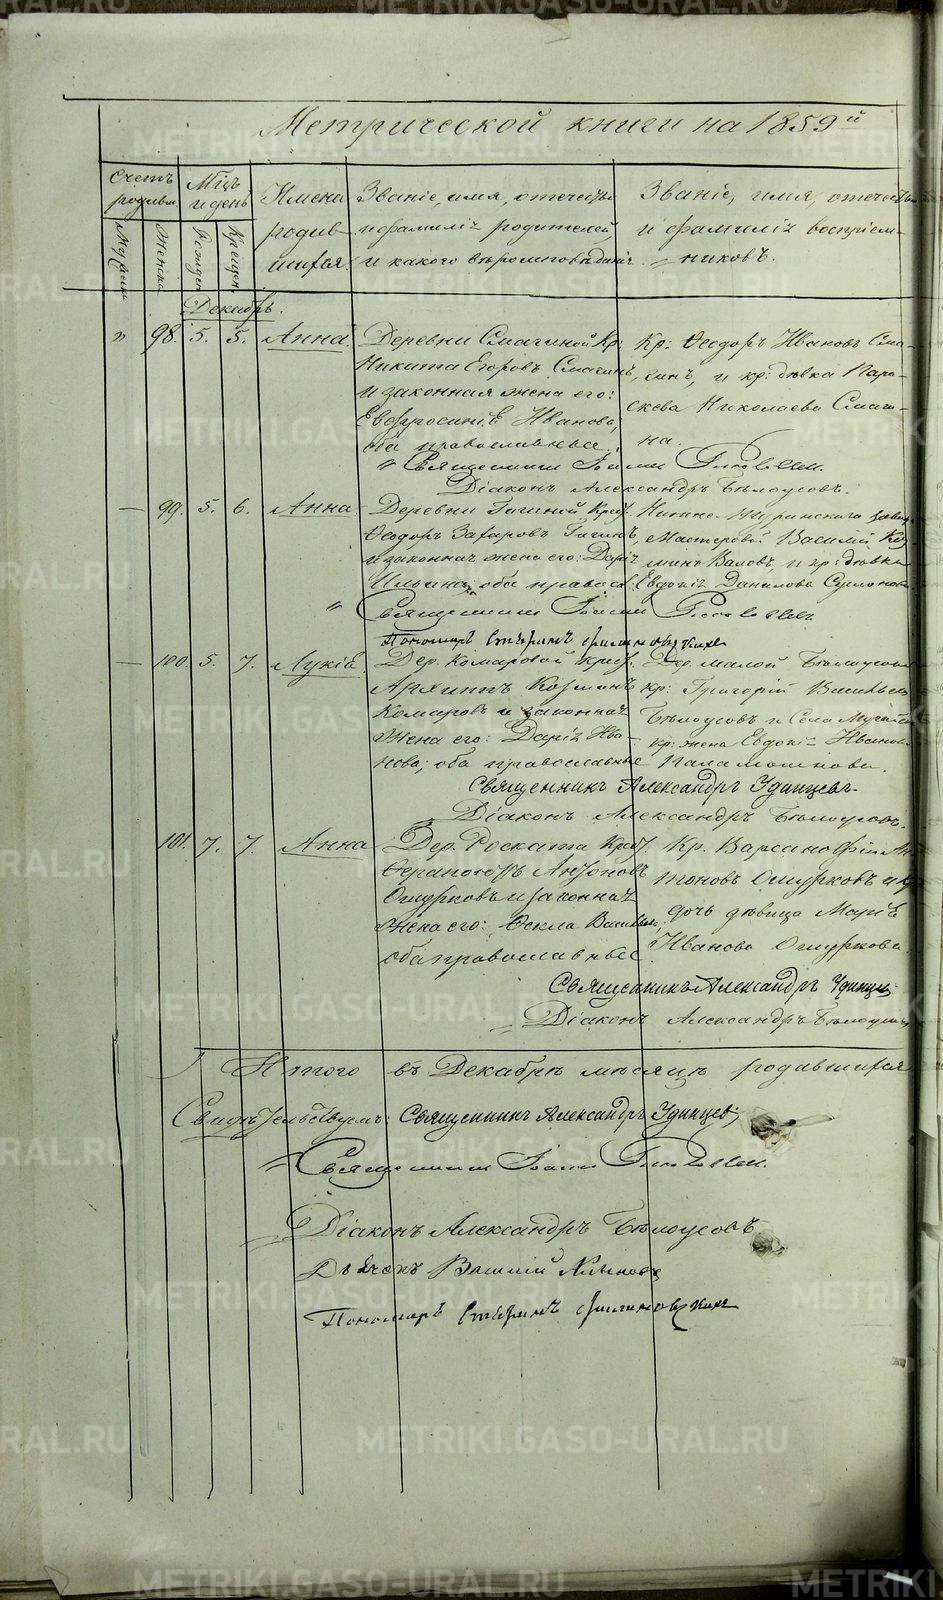 Метрической книги на 1859й
Счетъ родивш.
Мцъ и день
Имена родившихся.
Званіе, имя, отечество и фамилія родителей, и какого вѣроисповѣданія
Званіе, имя, отечество и фамилія воспріемниковъ.
Мужска
Женска
Рожден
Крещен
Декабрь.
" 98. 5. 5. Анна.
Деревни Смагиной Кр:
Никита Егоровъ Смагинъ,
и законная жена его:
Евфросинія Иванова,
оба православные.
Кр: Ѳеодоръ Ивановъ Сма-
гинъ, и кр: дѣвка Паро-
скева Николаева Смаги-
на.
" Священникъ Іоаннъ
Діаконъ Александръ Бѣлоусовъ.
— 99. 5. 6. Анна.
Деревни Гагиной Крест.
Ѳеодоръ Захаровъ Гагинъ,
и законная жена его: Дарія
Ильина, оба правосл.
Мастеровой Василій
и кр: дѣвка
Евдокія Данилова
" Священникъ Іоаннъ
Пономарь
— 100. 5. 7. Лукія.
Дер. Комаровой крест.
Архиппъ Козминъ
Комаровъ и законная
жена его: Дарія Ива-
нова; оба православные
Дер. Малой Бѣлоусовой
кр: Григорій Васильевъ
Бѣлоусовъ и Села
кр: жена Евдокія Иванова
Паламошнова.
Священникъ Александръ Удинцевъ.
Діаконъ Александръ Бѣлоусовъ.
101. 7. 7. Анна
Дер. Роската Крест.
Ѳерапонтъ Антоновъ
Ошурковъ и законная
жена его: Ѳекла Васильева,
оба православные.
Кр. Варсанофій Ан-
тоновъ Ошурковъ и кр
дочь дѣвица Марія
Иванова Ошуркова.
Священникъ Александръ Удинцевъ
Діаконъ Александръ Бѣлоусовъ
Итого въ Декабрѣ мѣсяцѣ родившихся
Свидѣтельствуемъ: Священникъ Александръ Удинцевъ
Священникъ Іоаннъ
Діаконъ Александръ Бѣлоусовъ
Дьячекъ Василій
Пономарь
METRIKI.GASO-URAL.RU